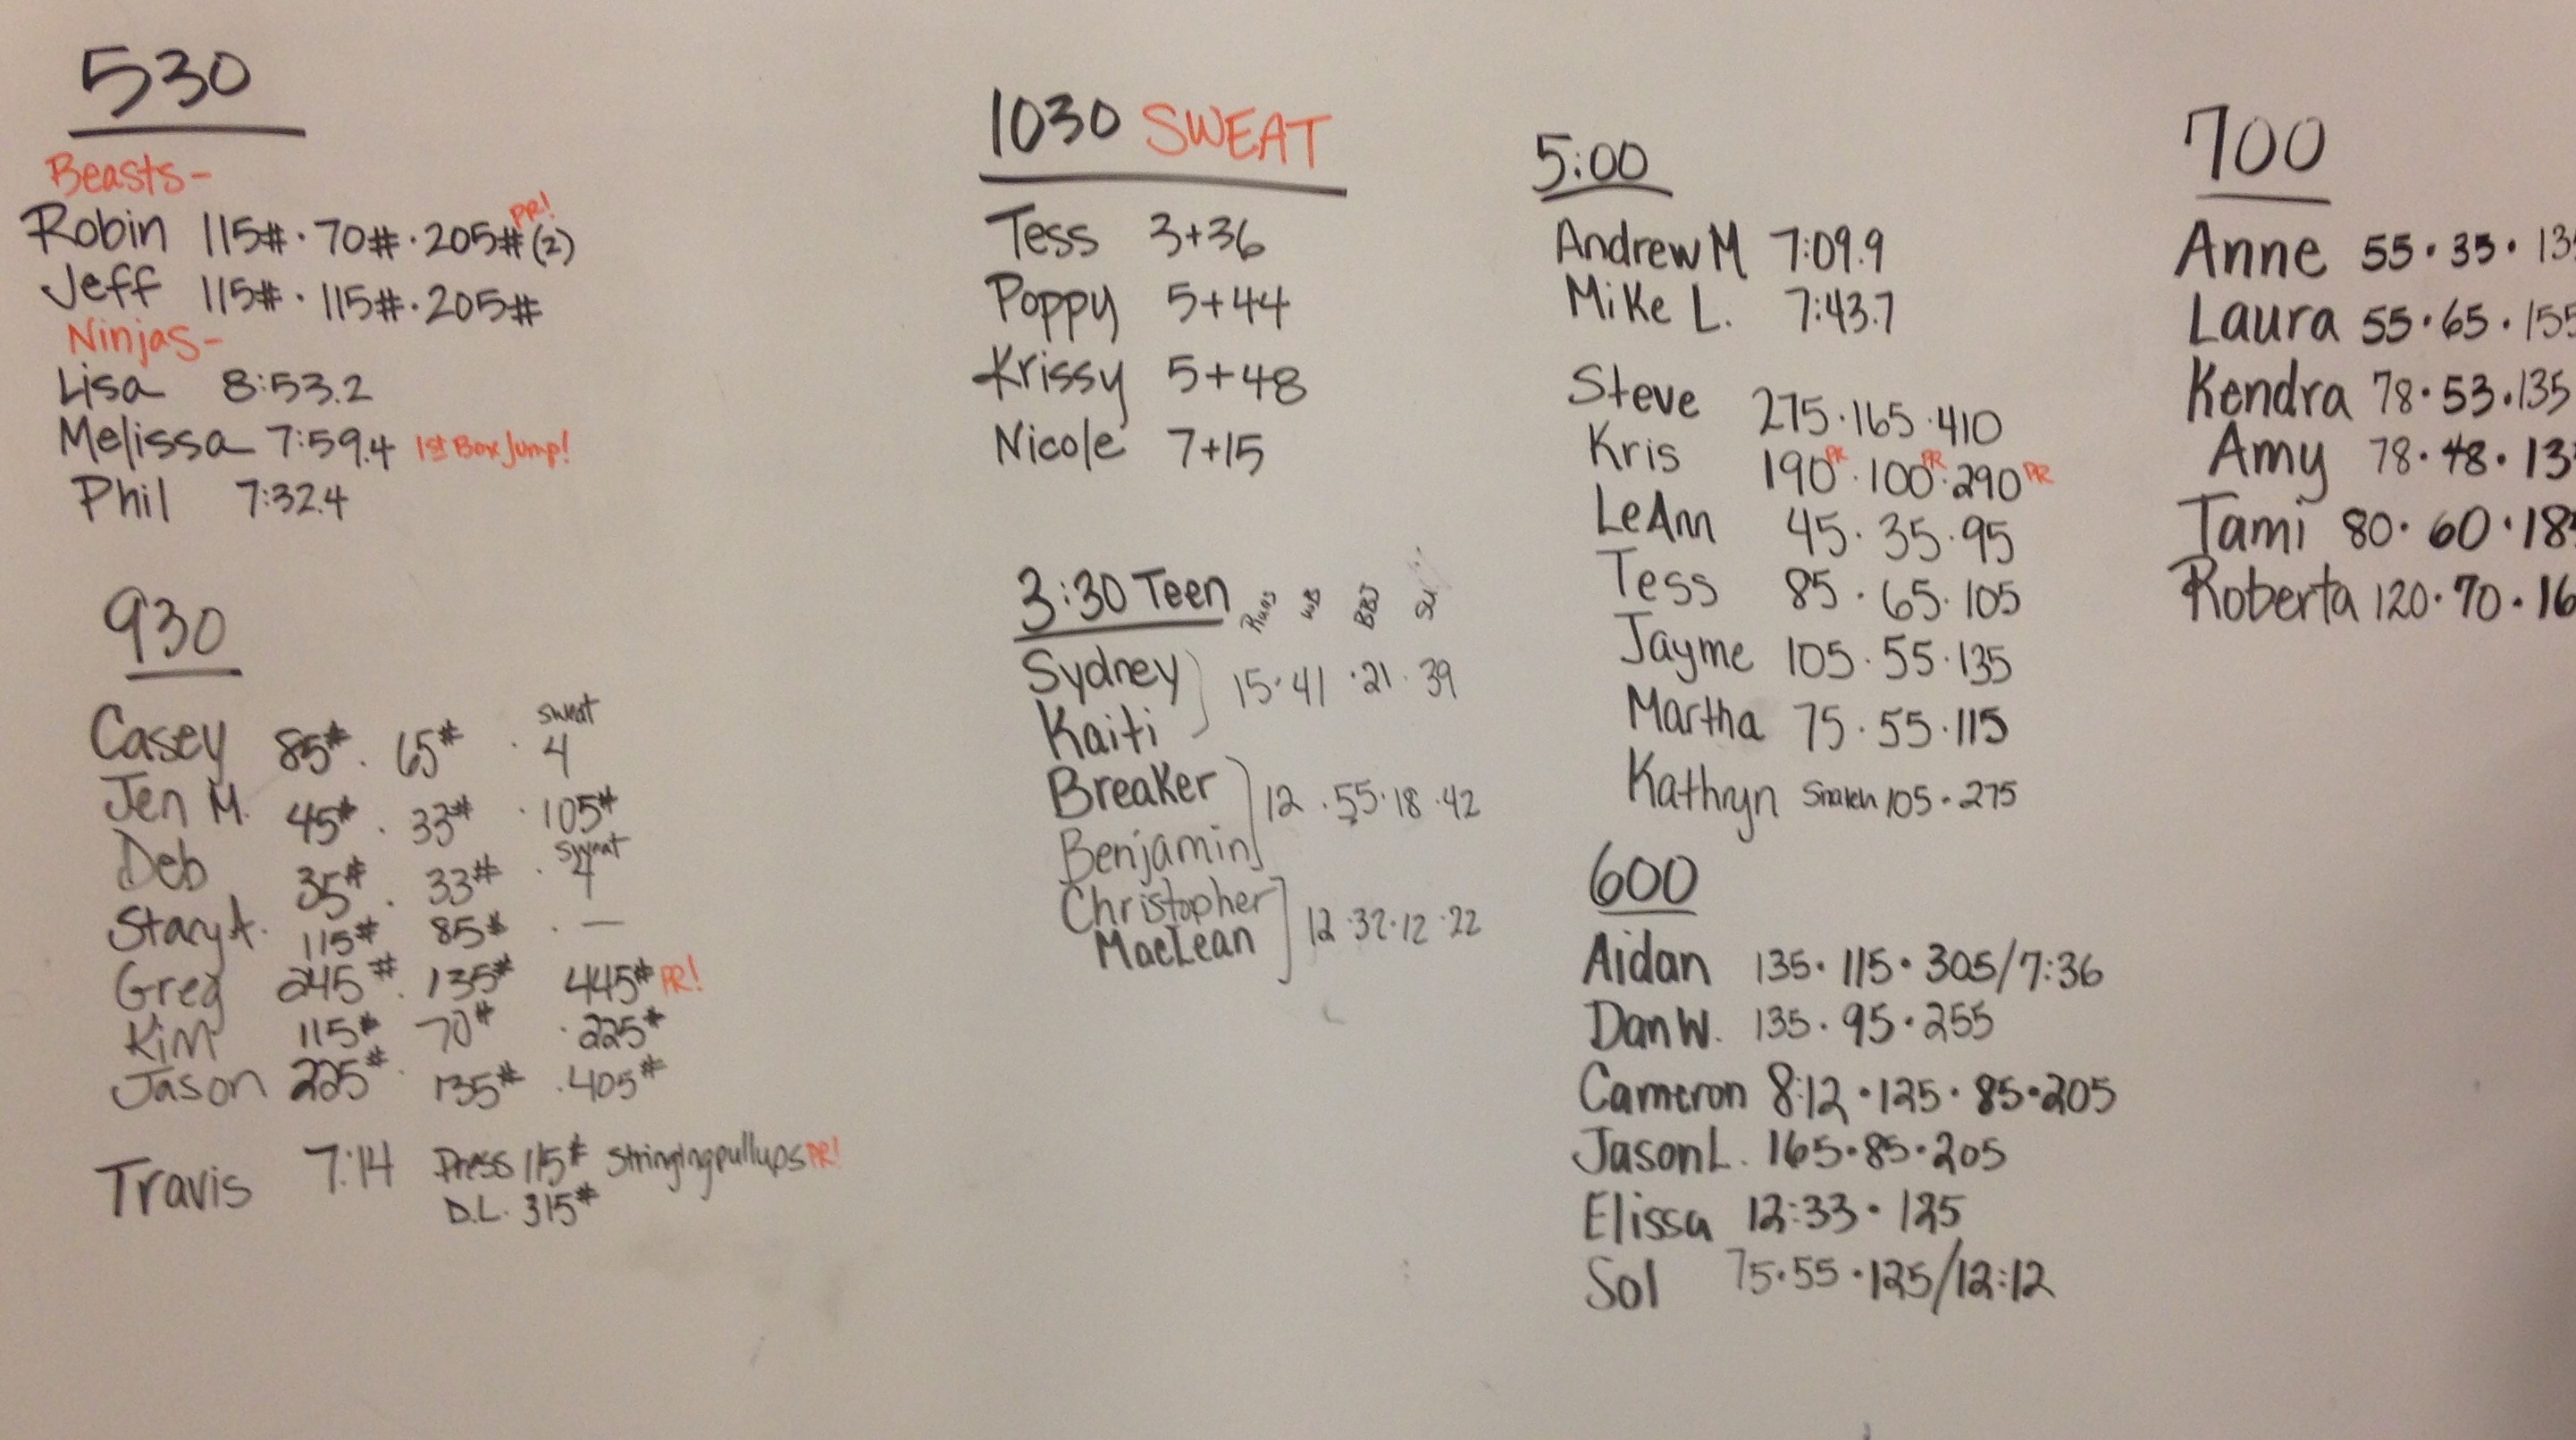 530
Beasts-
Robin 115#·70#·205# (2) PR!
Jeff 115#·115#·205#
Ninjas-
Lisa 8:53.2
Melissa 7:59.4 1st Box Jump!
Phil 7:32.4
930
Casey 85#·65#·sweat 4
Jen M. 45#·33#·105#
Deb 35#·33#·sweat 4
Stacy A. 115# 85#·—
Greg 245#·135# 445# PR!
Kim 115# 70#·225#
Jason 225#·135#·405#
Travis 7:14 Press 115# Stringing pullups PR!
D.L. 315#
1030 SWEAT
Tess 3+36
Poppy 5+44
Krissy 5+48
Nicole 7+15
3:30 Teen Runs WB BBJ SU
Sydney 15·41·21·39
Kaiti
Breaker 12·55·18·42
Benjamin
Christopher 12·32·12·22
MacLean
5:00
Andrew M 7:09.9
Mike L. 7:43.7
Steve 275·165·410
Kris 190 PR·100 PR·290 PR
LeAnn 45·35·95
Tess 85·65·105
Jayme 105·55·135
Martha 75·55·115
Kathryn Snatch 105·275
600
Aidan 135·115·305/7:36
Dan W. 135·95·255
Cameron 8:12·125·85·205
Jason L. 165·85·205
Elissa 12:33·125
Sol 75·55·125/12:12
700
Anne 55·35·13
Laura 55·65·155
Kendra 78·53·135
Amy 78·48·13
Tami 80·60·18
Roberta 120·70·16